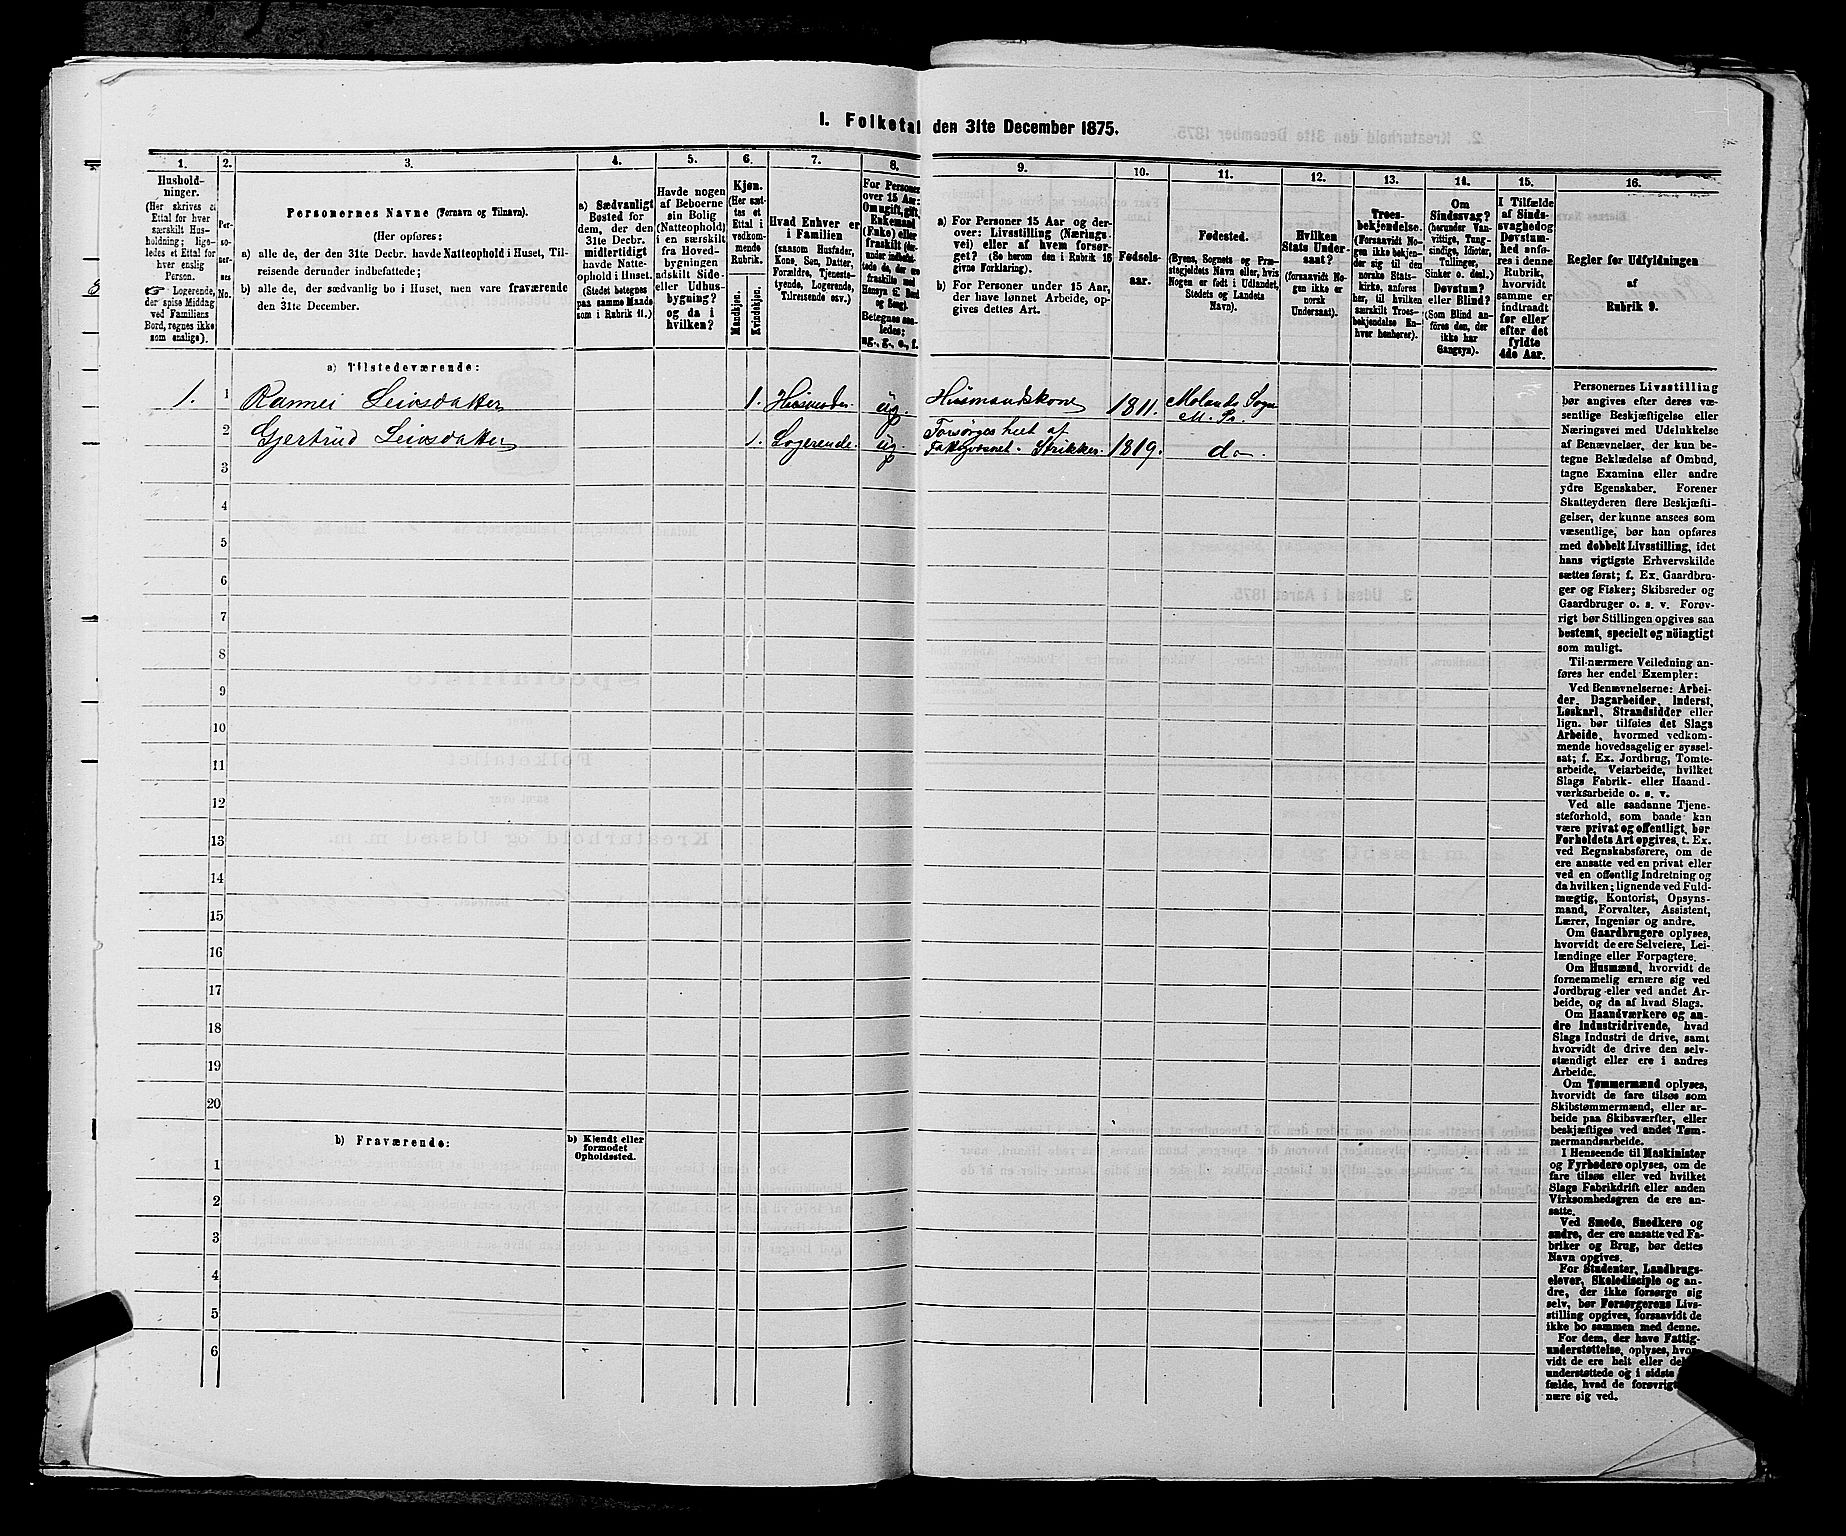 I. Folketal den 31te December 1875.
1. 2. 3. 4. 5. 6. 7. 8. 9. 10. 11. 12. 13. 14. 15. 16.
Hushold-
ninger.
(Her skrives et
Ettal for hver
særskilt Hus-
holdning; lige-
ledes et Ettal for
hver enslig
Person.
☞ Logerende,
der spise Middag
ved Familiens
Bord, regnes ikke
som enslige).
Per-
so-
ner-
nes
No.
Personernes Navne (Fornavn og Tilnavn).
(Her opføres:
a) alle de, der den 31te Decbr. havde Natteophold i Huset, Til-
reisende derunder indbefattede;
b) alle de, der sædvanlig bo i Huset, men vare fraværende
den 31te December.
a) Sædvanligt
Bosted for
dem, der den
31te Decbr.
midlertidigt
havde Natte-
ophold i Huset.
(Stedet betegnes
paa samme Maade
som i Rubrik 11.)
Havde nogen
af Beboerne
sin Bolig
(Natteophold)
i en særskilt
fra Hoved-
bygningen
adskilt Side-
eller Udhus-
bygning?
og da i
hvilken?
Kjøn.
(Her sæt-
tes et
Ettal i
vedkom-
mende
Rubrik.
Mandkjøn.
Kvindekjøn.
Hvad Enhver er
i Familien
(saasom Husfader,
Kone, Søn, Datter,
Forældre, Tjeneste-
tyende, Logerende,
Tilreisende osv.)
For Personer
over 15 Aar:
Om ugift, gift,
Enkemand
(Enke) eller
fraskilt
Betegnes saa-
ledes:
ug., g., e., f.
a) For Personer 15 Aar og der-
over: Livsstilling (Nærings-
vei) eller af hvem forsør-
get? (Se herom den i Rubrik 16
givne Forklaring).
b) For Personer under 15 Aar,
der have lønnet Arbeide, op-
gives dettes Art.
Fødsels-
aar.
Fødested.
(Byens, Sognets og Præ-
stegjeldets Navn eller, hvis
Nogen er født i Udlandet,
Stedets og Landets
Navn).
Hvilken
Stats Under-
saat?
(forsaavidt No-
gen ikke er
norsk
Undersaat).
Troes-
bekjendelse.
(Forsaavidt No-
gen ikke bekjen-
der sig til den
norske Stats-
kirke, anføres
her, til hvilken
særskilt Troes-
bekjendelse En-
hver henhører).
Om
Sindssvag?
(herunder Van-
vittige, Tung-
sindige, Idioter,
Tullinger,
Sinker o. desl.)
Døvstum?
eller Blind?
(Som Blind an-
føres den, der
ikke har
Gangsyn).
I Tilfælde
af Sinds-
svaghed og
Døvstum-
hed anfø-
res i denne
Rubrik,
hvorvidt
samme er
indtraadt
før eller
efter det
fyldte
4de Aar.
Regler for Udfyldningen
af
Rubrik 9.
a) Tilstedeværende:
1. 1 Rannei Leivsdatter 1. ug. Husmandskone 1811. Molands Sogn
M. Pr.
2 Gjertrud Leivsdatter 1. Logerende. ug. Forsørges helt af
Fattigvæsnet. Strikker. 1819. do.
3
4
5
6
7
8
9
10
11
12
13
14
15
16
17
18
19
20
b) Fraværende:
b) Kjendt eller
formodet
Opholdssted.
1
2
3
4
5
6
Personernes Livsstilling
bør angives efter deres væ-
sentlige Beskjæftigelse eller
Næringsvei med Udelukkelse
af Benævnelser, der kun be-
tegne Beklædelse af Ombud,
tagne Examina eller andre
ydre Egenskaber. Forener
Skatteyderen flere Beskjæfti-
gelser, der kunne ansees som
væsentlige, bør han opføres
med dobbelt Livsstilling, idet
hans vigtigste Erhvervskilde
sættes først; f. Ex. Gaardbru-
ger og Fisker; Skibsreder og
Gaardbruger o. s. v. Forøv-
rigt bør Stillingen opgives saa
bestemt, specielt og nöiagtigt
som muligt.
Til nærmere Veiledning an-
føres her endel Exempler:
Ved Benævnelserne: Arbei-
der, Dagarbeider, Inderst,
Løskarl, Strandsidder eller
lign. bør tilføies det Slags
Arbeide, hvormed vedkom-
mende hovedsagelig er syssel-
sat; f. Ex. Jordbrug, Tomte-
arbeide, Veiarbeide, hvilket
Slags Fabrik- eller Haand-
værksarbeide o. s. v.
Ved alle saadanne Tjene-
steforhold, som baade kan
være privat og offentligt, bør
Forholdets Art opgives, t. Ex.
ved Regnskabsførere, om de
ere ansatte ved en privat eller
ved en offentlig Indretning og
da hvilken; lignende ved Fuld-
mægtig, Kontorist, Opsyns-
mand, Forvalter, Assistent,
Lærer, Ingeniør og andre.
Om Gaardbrugere oplyses,
hvorvidt de ere Selveiere, Lei-
lændinge eller Forpagtere.
Om Husmænd, hvorvidt de
fornemmelig ernære sig ved
Jordbrug eller ved andet Ar-
beide, og da af hvad Slags.
Om Haandværkere og an-
dre Industridrivende, hvad
Slags Industri de drive, samt
hvorvidt de drive den selv-
stændigt eller ere i andres
Arbeide.
Om Tømmermænd oplyses,
hvorvidt de fare tilsøs som
Skibstømmermænd, eller ar-
beide paa Skibsværfter, eller
beskjæftiges ved andet Tøm-
mermandsarbeide.
I Henseende til Maskinister
og Fyrbødere oplyses, om de
fare tilsøs eller ved hvilket
Slags Fabrikdrift eller anden
Virksomhedsgren de ere an-
satte.
Ved Smede, Snedkere og
andre, der ere ansatte ved Fa-
briker og Brug, bør dettes
Navn opgives.
For Studenter, Landbrugs-
elever, Skoledisciple og an-
dre, der ikke forsørge sig
selv, bør Forsørgerens Livs-
stilling opgives, forsaavidt de
ikke bo sammen med denne.
For dem, der have Fattig-
understøttelse, oplyses, hvor-
vidt de ere helt eller
understøttede og i sidste
fælde, hvad de forøvrigt
nære sig ved.